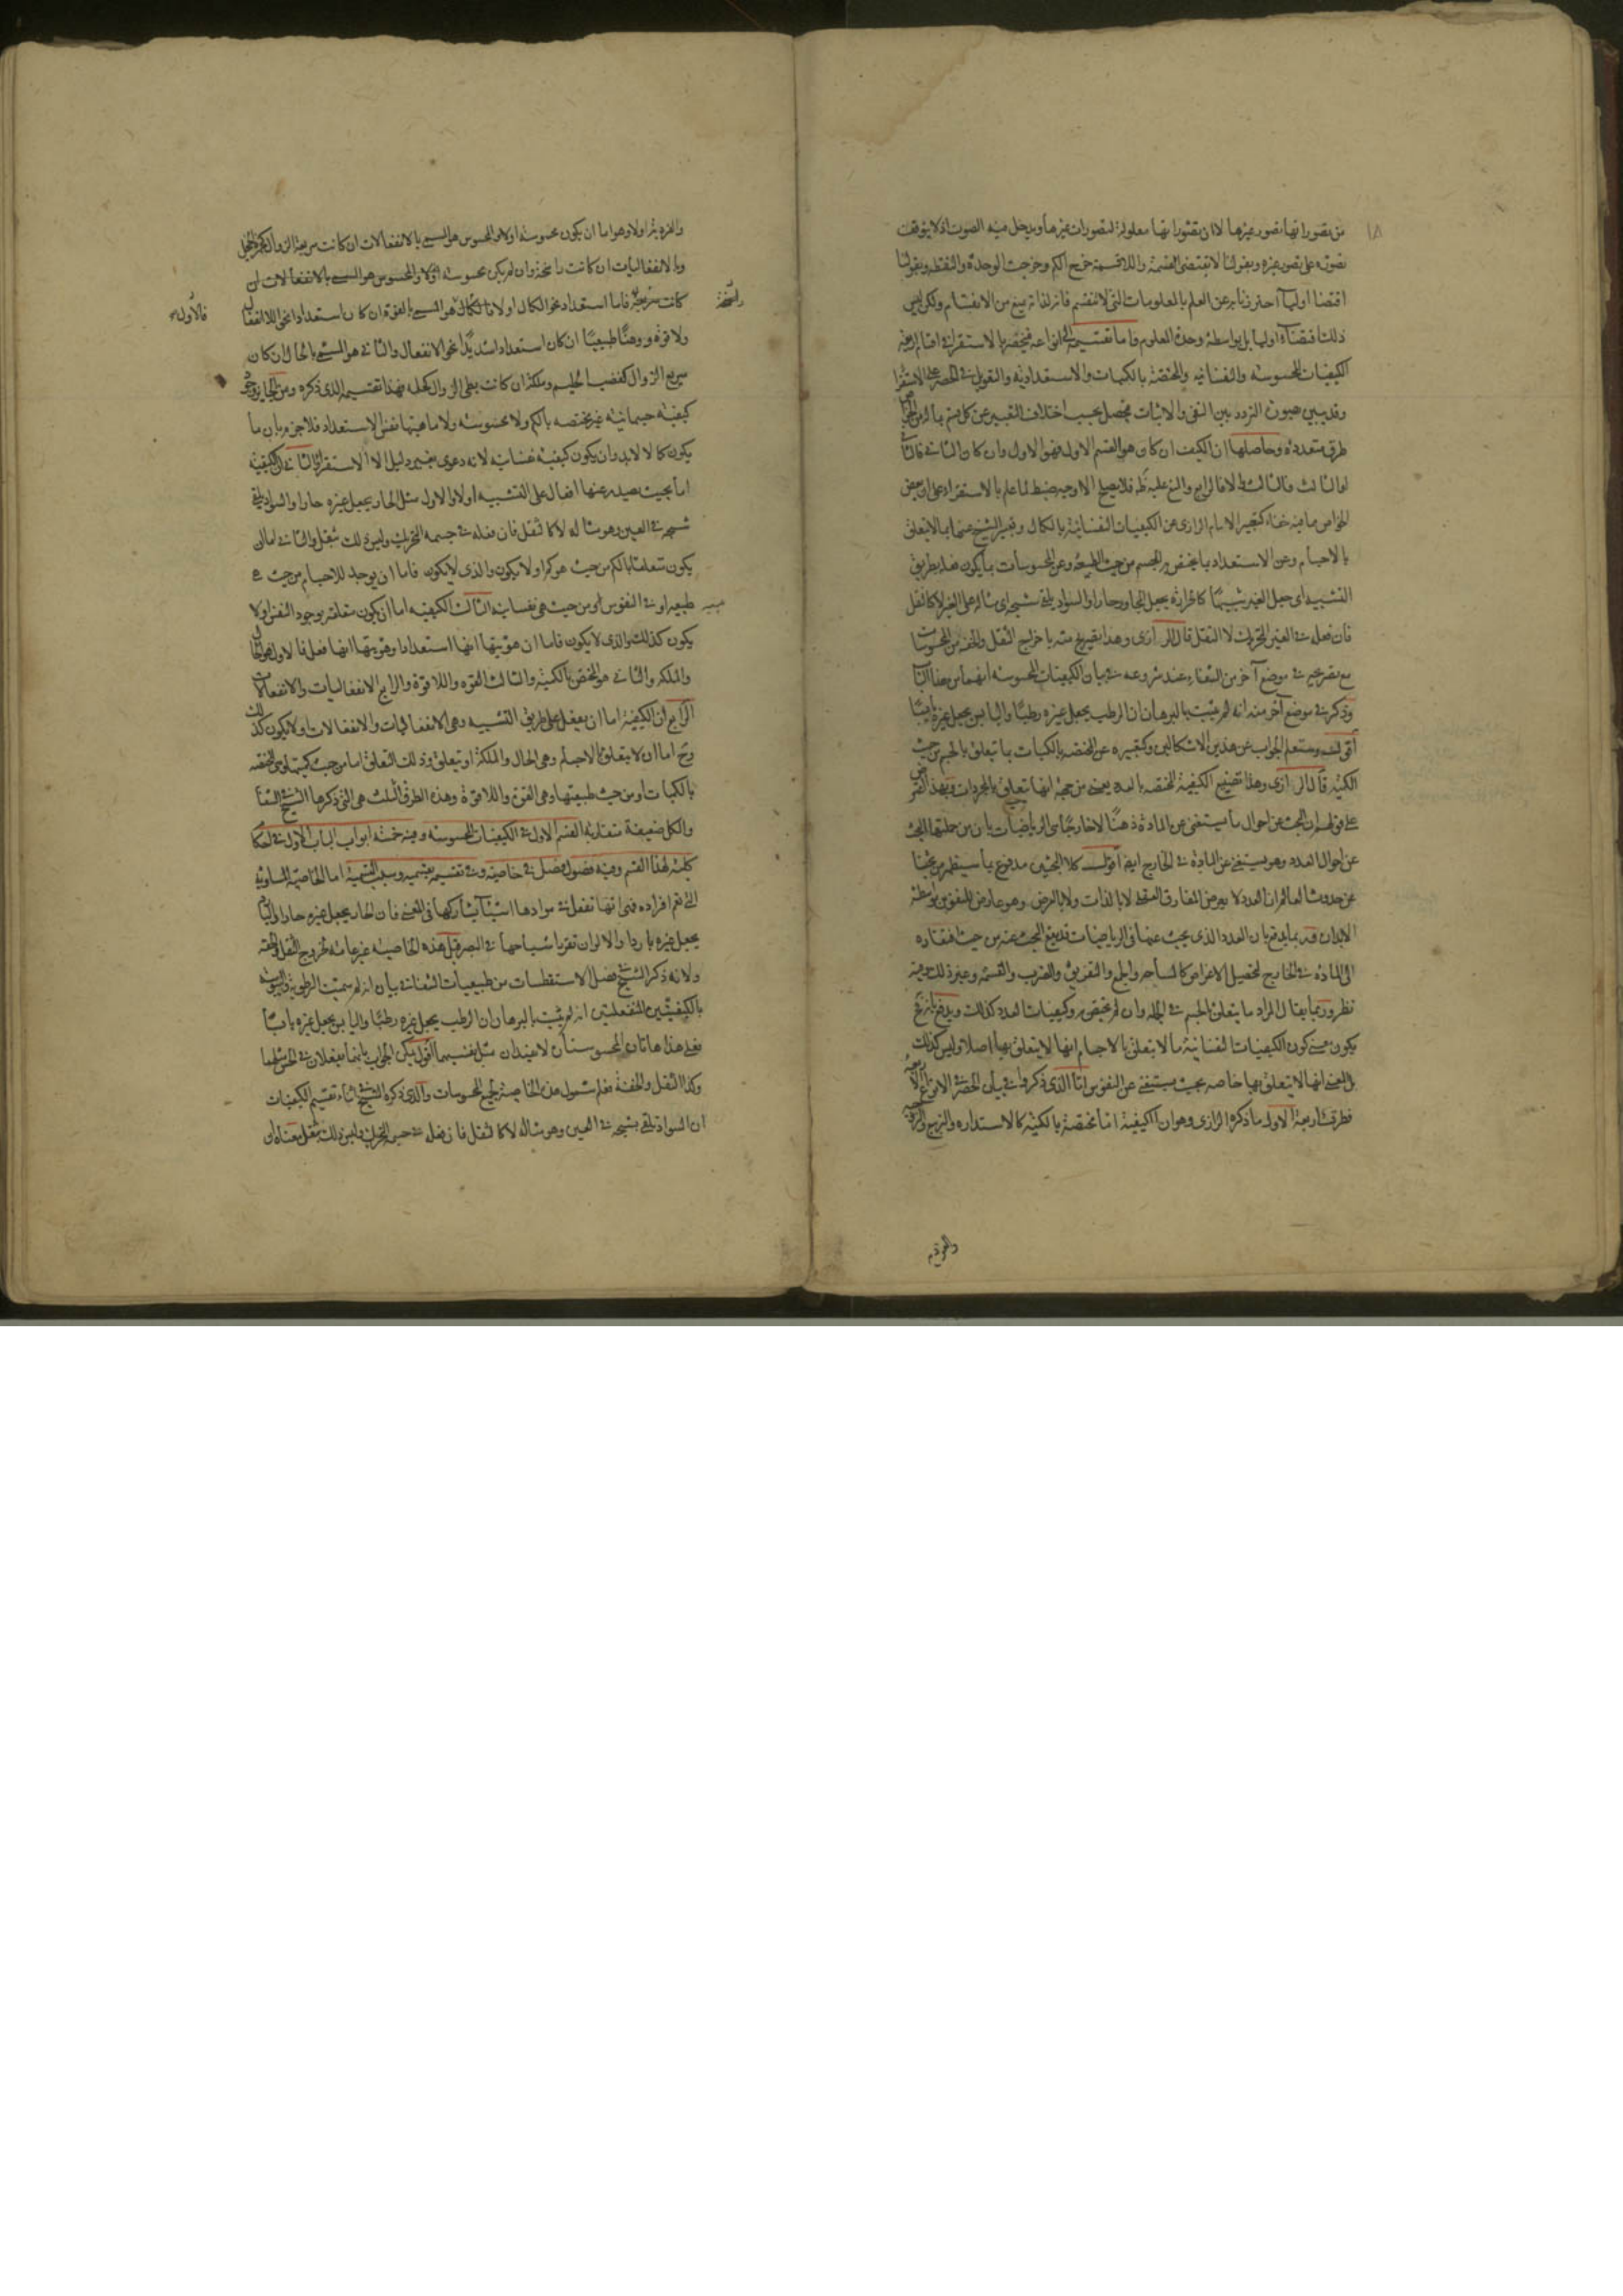 من تصوراتها تصور غيرها لا ان تصوراتها معلولة لتصورات غيرها ويدخل فيه الصوت اذ لا يتوقف
تصوره على تصور غيره وبقولنا لا تقتضى القسمة واللاقسمة خرج الكم وخرجت الوحدة والنقطة وبقولنا
اقتضاء اوليا احترزنا به عن العلم بالمعلومات التى لا تنقسم فانه لذاته يمنع من الانقسام ولكن ليس
ذلك اقتضاء اوليا بل بواسطة وحدة المعلوم فاما تقسيمه الى انواعه فينحصر بالاستقراء فى اقسام اربعة
الكيفيات المحسوسة والنفسانية والمختصة بالكميات والاستعدادية والتعويل فى الحصر على الاستقراء
وقد يبين بصورة التردد بين النفى والاثبات فيحصل بحسب اختلاف التعبير عن كل قسم بما له من الخواص
طرق متعددة وحاصلها ان الكيف ان كان هو القسم الاول فهو الاول وان كان الثانى فالثانى
او الثالث فالثالث والا فالرابع والمنع عليه ظ فلا يصلح الا وجه ضبط لما علم بالاستقراء على ان بعض
الخواص مما فيه خفاء كتعبير الامام الرازى عن الكيفيات النفسانية بالكمال وتعبير الشيخ عنها بما لا يتعلق
بالاجسام وعن الاستعداد بما يختص بالجسم من حيث الطبيعة وعن المحسوسات بما يكون فعله بطريق
التشبيه اى جعل الغير شبيها كالحرارة يجعل المجاور حارا والسواد يلقى شبحه اى مثاله على العين لا كالثقل
فان فعله فى الغير التحريك لا الثقل قال الرازى وهذا تصريح منه باخراج الثقل والخفة من المحسوسات
مع تصريحه فى موضع آخر من الشفاء عند شروعه فى بيان الكيفيات المحسوسة انهما من هذا الباب
وذكر فى موضع آخر منه انه لم يثبت بالبرهان ان الرطب يجعل غيره رطبا واليابس يجعل غيره يابسا
اقول وستعلم الجواب عن هذين الاشكالين وكتعبيره عن المختصة بالكميات بما يتعلق بالجسم من حيث
الكمية قال الرازى وهذا تضييع الكيفية المختصة بالعدد يعنى من جهة انها تتعلق بالمجردات وبهذا اعترض
على قولهم ان البحث عن احوال ما يستغنى عن المادة ذهنا لا خارجا هى الرياضيات بان من جملتها البحث
عن احوال العدد وهو يستغنى عن المادة فى الخارج ايضا اقول كلا البحثين مدفوع بما سيظهر من بحثنا
عن حدوث العالم ان العدد لا يعرض المفارق العقلى لا بالذات ولا بالعرض وهو عارض للنفوس بواسطة
الابدان وربما يدفع بان العدد الذى يبحث عنها فى الرياضيات قد يقع البحث عنه من حيث افتقاره
الى المادة فى الخارج لتحصيل الاغراض كالمساحة والجمع والتفريق والضرب والقسمة وغير ذلك وفيه
نظر وربما يقال المراد ما يتعلق بالجسم فى الجملة وان لم تختص به وكيفيات العدد كذلك ويدفع بانه ح
يكون معنى كون الكيفيات النفسانية ما لا يتعلق بالاجسام انها لا يتعلق بها اصلا وليس كذلك
بل المعنى انها لا يتعلق بها خاصة بحيث يستغنى عن النفوس واما الذى ذكروا فى بيان الحصر فى الانواع الاربعة
فطرق اربعة الاول ما ذكره الرازى وهو ان الكيفية اما مختصة بالكمية كالاستدارة والتربيع والزوجية
والفردية
والفردية او لا وهو اما ان يكون محسوسة او لا والمحسوس هو المسمى بالانفعالات ان كانت سريعة الزوال كحمرة الخجل
وبالانفعاليات ان كانت راسخة وان لم يكن محسوسة
ولا قوة ووهنا طبيعيا ان كان استعدادا شديدا نحو الانفعال والثانى هو المسمى بالحال ان كان
سريع الزوال كغضب الحليم وملكة ان كانت بطى الزوال كحلمه فهذا تقسيمه الذى ذكره ومن الجايز وجود
كيفية جسمانية غير مختصة بالكم ولا محسوسة ولا ماهيتها نفس الاستعداد فلا جزم بان ما
يكون كمالا لابد وان يكون كيفية نفسانية لانه دعوى بغير دليل الا الاستقراء الثانى ان الكيفية
اما بحيث يصدر عنها افعال على التشبيه او لا والاول مثل الحار يجعل غيره حارا والسواد يلقى
شبحه فى العين وهو مثاله لا كالثقل فان فعله فى جسمه التحريك وليس ذلك بثقل والثانى اما ان
يكون متعلقا بالكم من حيث هو كم او لا يكون والذى لا يكون فاما ان يوجد للاجسام من حيث هى
طبيعية او فى النفوس او من حيث هى نفسانية الثالث الكيفية اما ان يكون متعلقة بوجود النفس او لا
يكون كذلك والذى لا يكون فاما ان هويتها انها استعداد او هويتها انها فعل فالاول هو الحال
والملكة والثانى هو المختص بالكمية والثالث القوة واللاقوة والرابع الانفعاليات والانفعالات
الرابع ان الكيفية اما ان يفعل على طريق التشبيه وهى الانفعاليات والانفعالات او لا يكون كذلك
وح اما ان لا يتعلق بالاجسام وهى الحال والملكة او يتعلق وذلك التعلق اما من حيث كميتها وهى المختصة
بالكميات او من حيث طبيعتها وهى القوة واللاقوة وهذه الطرق الثلث هى التى ذكرها الشيخ فى الشفا
والكل ضعيفة متقاربة القسم الاول فى الكيفيات المحسوسة وفيه خمسة ابواب الباب الاول فى احكام
كلية لهذا القسم وفيه فصول فصل فى خاصيته وفى تقسيمه بقسميه وسبب التسمية اما الخاصية المساوية
التى تعم افراده فهى انها تفعل فى موادها اشياء تشاركها فى المعنى فان الحار يجعل غيره حارا والبارد
يجعل غيره باردا والالوان تقرر اشباحها فى البصر قيل هذه الخاصية غير عامة لخروج الثقل والخفة
ولانه ذكر الشيخ فى فصل الاستقطسات من طبيعيات الشفاء فى بيان انه لم سميت الرطوبة واليبوسة
بالكيفيتين المنفعلتين انه لم يثبت بالبرهان ان الرطب يجعل غيره رطبا واليابس يجعل غيره يابسا
فعلى هذا هاتان المحسوستان لا تفيدان مثل نفسيهما اقول يمكن الجواب بانهما يفعلان فى الحس مثلهما
وكذا الثقل والخفة فعلم شمول هذه الخاصية لجميع المحسوسات والذى ذكره الشيخ فى اثناء تقسيم الكيفيات
ان السواد يلقى بشبحه فى العين وهو مثاله لا كالثقل فان فعله فى جسمه التحريك وليس ذلك بثقل معناه ان